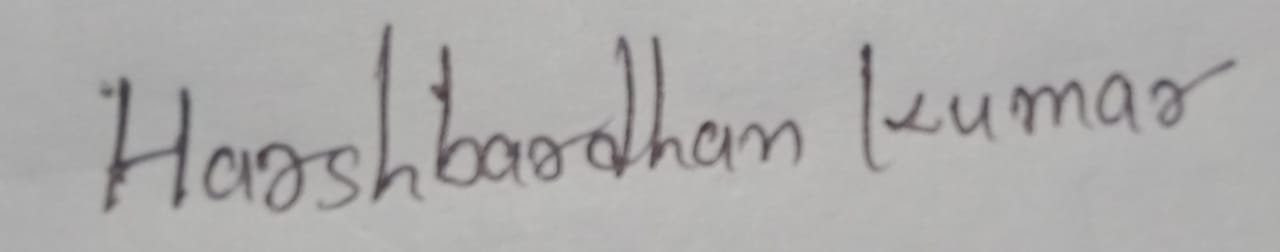 Harshbardhan Kumar